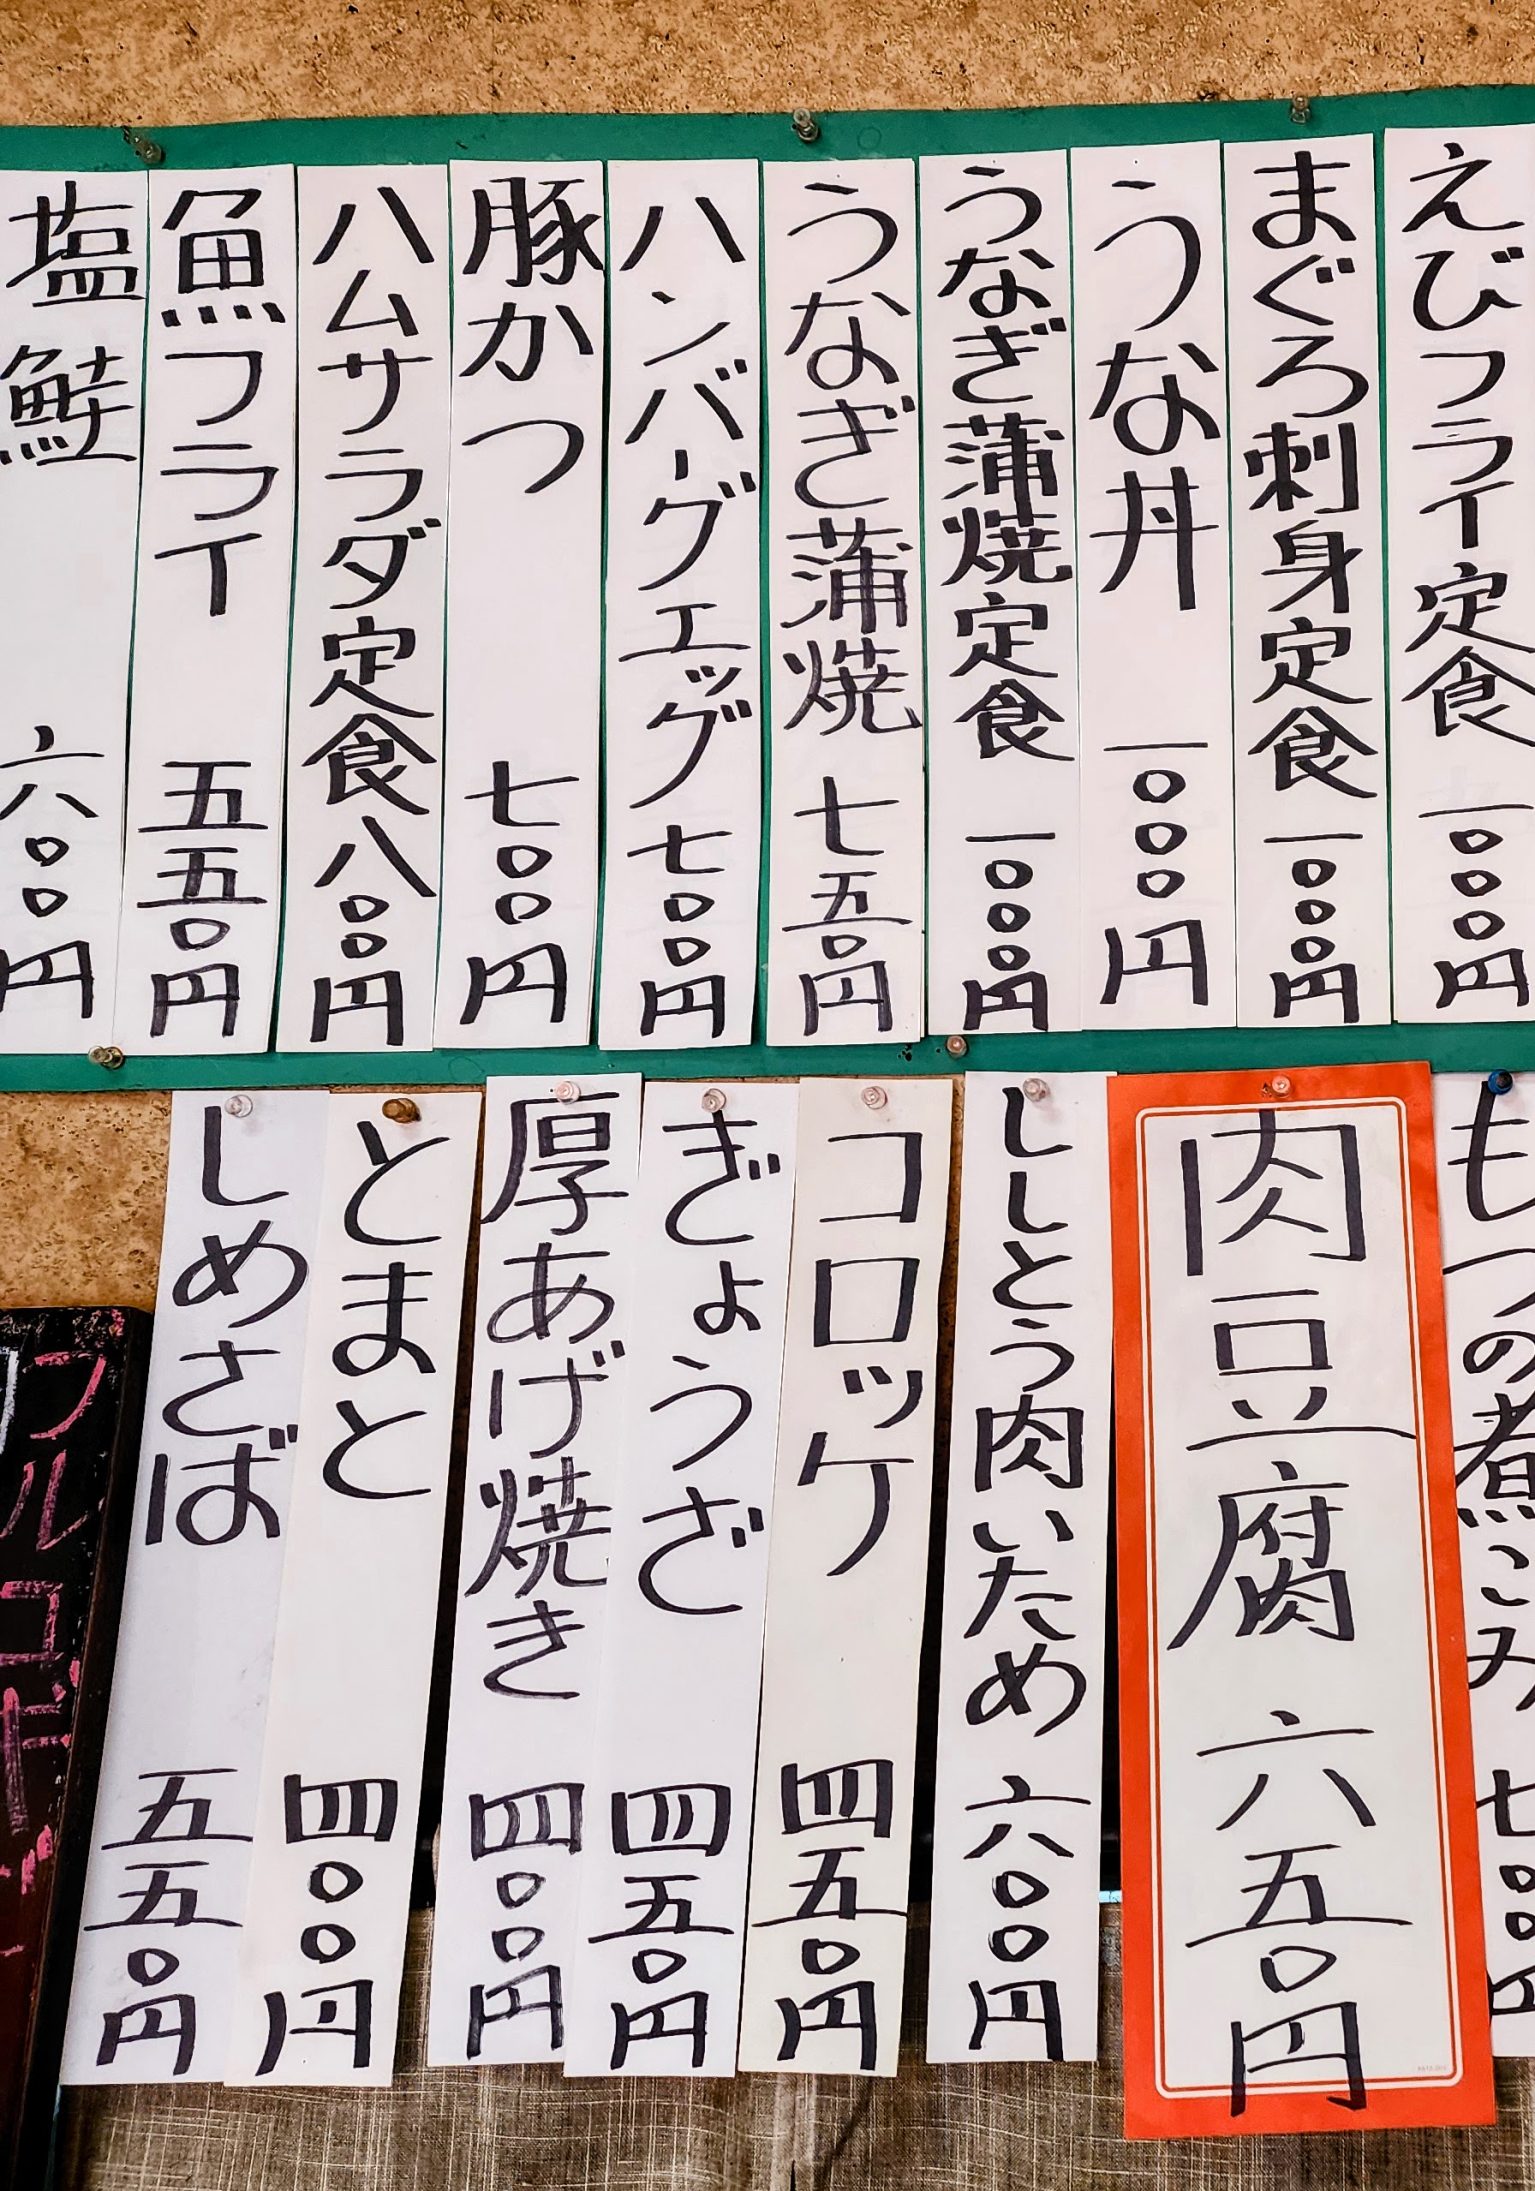 えびフライ定食 一〇〇〇円
まぐろ刺身定食 一〇〇〇円
うな丼 一〇〇〇円
うなぎ蒲焼定食 一〇〇〇円
うなぎ蒲焼 七五〇円
ハンバーグエッグ 七〇〇円
豚かつ 七〇〇円
ハムサラダ定食 八〇〇円
魚フライ 五五〇円
塩鮭 六〇〇円
もつの煮こみ 七〇〇円
肉豆腐 六五〇円
ししとう肉いため 六〇〇円
コロッケ 四五〇円
ぎょうざ 四五〇円
厚あげ焼き 四〇〇円
とまと 四〇〇円
しめさば 五五〇円